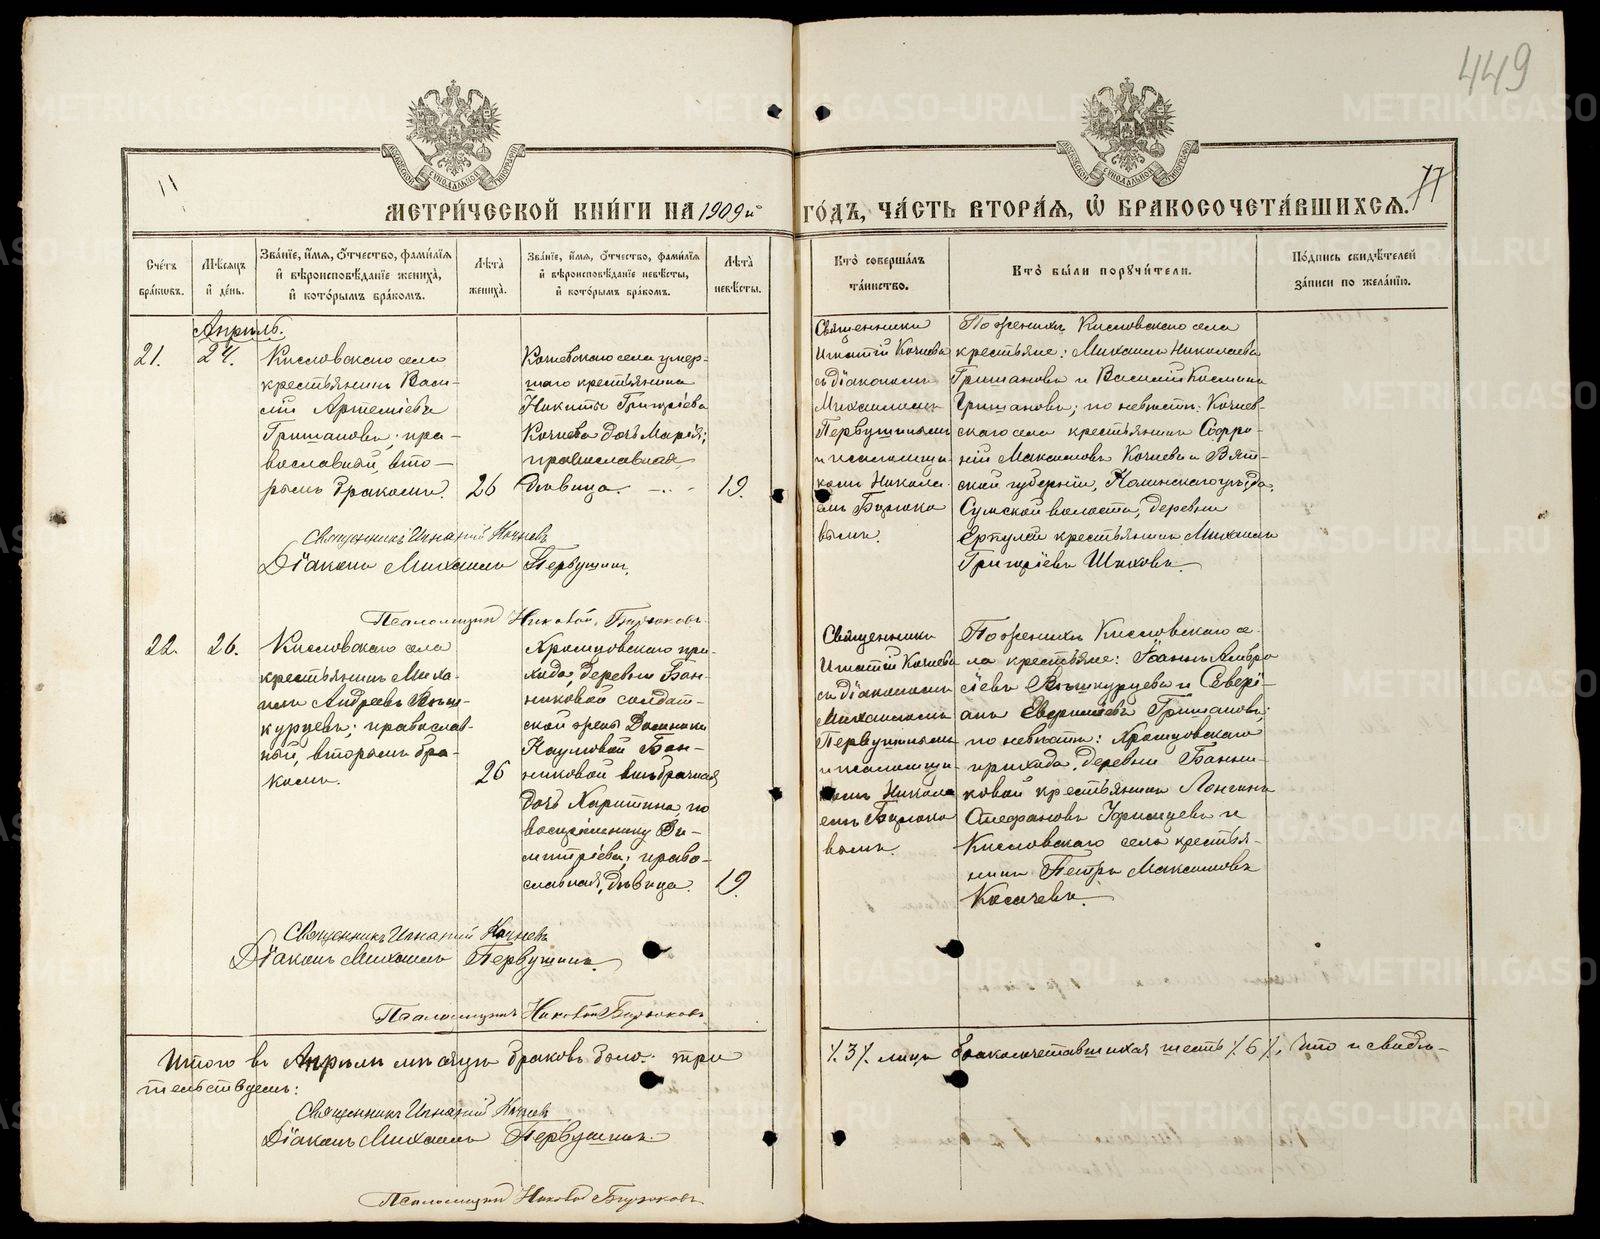 449
11
77
МЕТРИ́ЧЕСКОЙ КНИ́ГИ НА 1909й ГО́ДЪ, ЧА́СТЬ ВТОРА́Я, Ѡ҆ БРАКОСОЧЕТА́ВШИХСЯ.
Сче́тъ бра́кѡвъ.
Мѣ́сяцъ и҆ де́нь.
Зва́нїе, и҆́мя, ѻ҆́тчество, фами́лїя и҆ вѣроисповѣ́данїе жениха̀, и҆ кото́рымъ бра́комъ.
Лѣ́та жениха̀.
Зва́нїе, и҆́мя, ѻ҆́тчество, фами́лїя и҆ вѣроисповѣ́данїе невѣ́сты, и҆ кото́рымъ бра́комъ.
Лѣ́та невѣ́сты.
Кто̀ соверша́лъ та́инство.
Кто̀ бы́ли порꙋчи́тели.
По́дпись свидѣ́телей за́писи по жела́нїю.
Апрѣль.
21.
24.
Кисловскаго села
крестьянинъ Васи-
лій Артеміевъ
Гришановъ; пра-
вославный, вто-
рымъ бракомъ.
26
Кочневскаго села умер-
шаго крестьянина
Никиты Григоріева
Кочнева дочь Марія;
православная
дѣвица.
19.
Священникъ
Игнатій Кочневъ
съ діакономъ
Михаиломъ
Первушинымъ
и псаломщи-
комъ Никола-
емъ Бирюко-
вымъ.
По женихѣ Кисловскаго села
крестьяне: Михаилъ Николаевъ
Гришановъ и Василій Косминъ
Гришановъ; по невѣстѣ: Кочнев-
скаго села крестьянинъ Софро-
ній Максимовъ Кочневъ и Вят-
ской губерніи,
Сумской волости, деревни
крестьянинъ Михаилъ
Григоріевъ Шиховъ.
Священникъ Игнатій Кочневъ
Діаконъ Михаилъ Первушинъ.
Псаломщикъ Николай Бирюковъ.
22.
26.
Кисловскаго села
крестьянинъ Миха-
илъ Андреевъ Вѣш-
курцевъ; православ-
ный, вторымъ бра-
комъ.
26
Хромцовскаго при-
хода, деревни Бан-
никовой солдат-
ской жены
Наумовой Бан-
никовой внѣбрачная
дочь Харитина, по
воспріемнику Ди-
митріева; право-
славная, дѣвица.
19.
Священникъ
Игнатій Кочневъ
съ діакономъ
Михаиломъ
Первушинымъ
и псаломщи-
комъ Никола
емъ Бирюко-
вымъ.
По женихѣ Кисловскаго се-
ла крестьяне: Іоаннъ Амвро
сіевъ Вѣшкурцевъ и Севері-
анъ Гришановъ;
по невѣстѣ: Хромцовскаго
прихода, деревни Банни-
ковой крестьянинъ Лонгинъ
Стефановъ и
Кисловскаго села крестья-
нинъ Петръ Максимовъ
Косачевъ.
Священникъ Игнатій Кочневъ
Діаконъ Михаилъ Первушинъ.
Псаломщикъ Николай Бирюковъ
Итого въ Апрѣлѣ мѣсяцѣ браковъ было: три /.3/. лицъ бракосочетавшихся шесть /.6/., что и свидѣ-
тельствуемъ:
Священникъ Игнатій Кочневъ
Діаконъ Михаилъ Первушинъ.
Псаломщикъ Николай Бирюковъ
METRIKI.GASO-URAL.RU